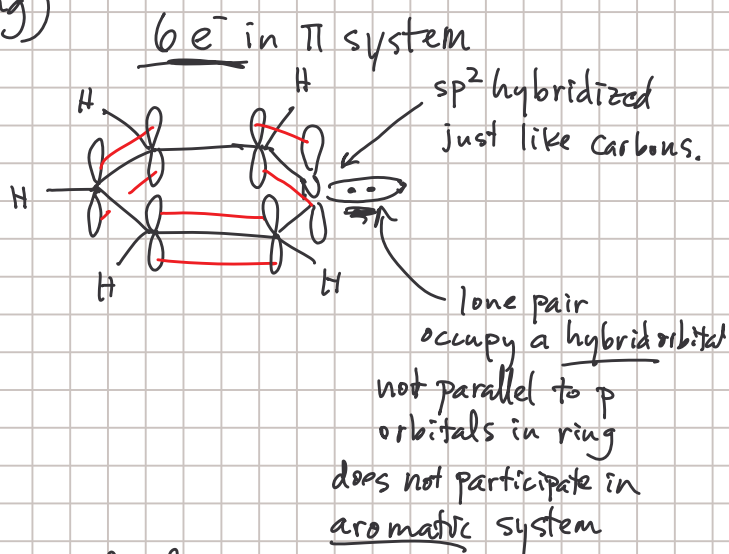 g)
6 e⁻ in π system
H
H
H
H
H
N
sp² hybridized
just like carbons.
lone pair
occupy a hybrid orbital
not parallel to p
orbitals in ring
does not participate in
aromatic system